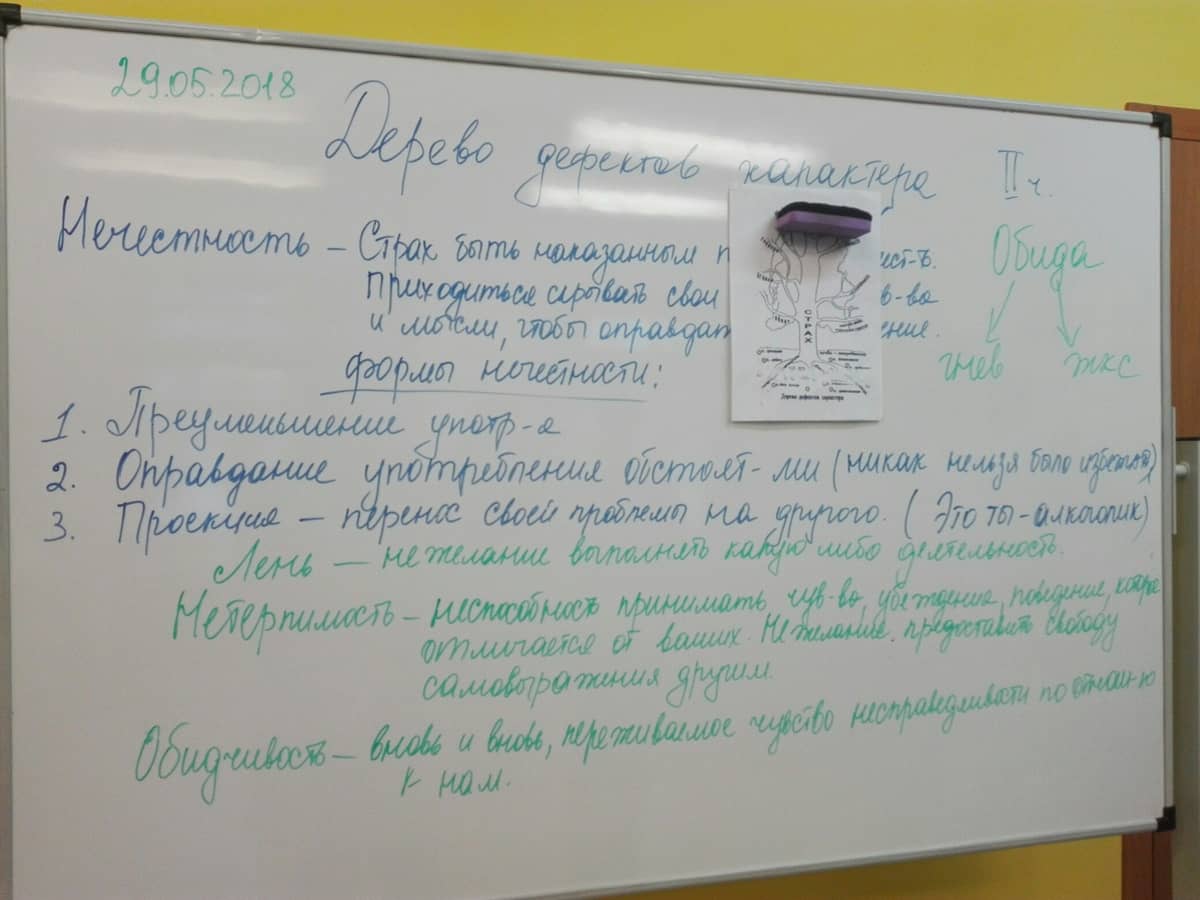 29.05.2018
Дерево дефектов характера II ч.
Нечестность – Страх быть наказанным п ест-ъ.
Приходиться скрывать свои в-ва
и мысли, чтобы оправдат ение.
Обида
гнев жкс
СТРАХ
Дерево дефектов характера
формы нечестности:
1. Преуменьшение употр-я
2. Оправдание употребления обстоят-ми (никак нельзя было избежать)
3. Проекция – перенос своей проблемы на другого. (Это ты-алкоголик)
Лень – нежелание выполнять какую либо деятельность.
Нетерпимость – неспособность принимать чув-ва, убеждение, поведение, которое
отличается от ваших. Нежелание предоставить свободу
самовыражения другим.
Обидчивость – вновь и вновь, переживаемое чувство несправедливости по отнош-ю
к нам.